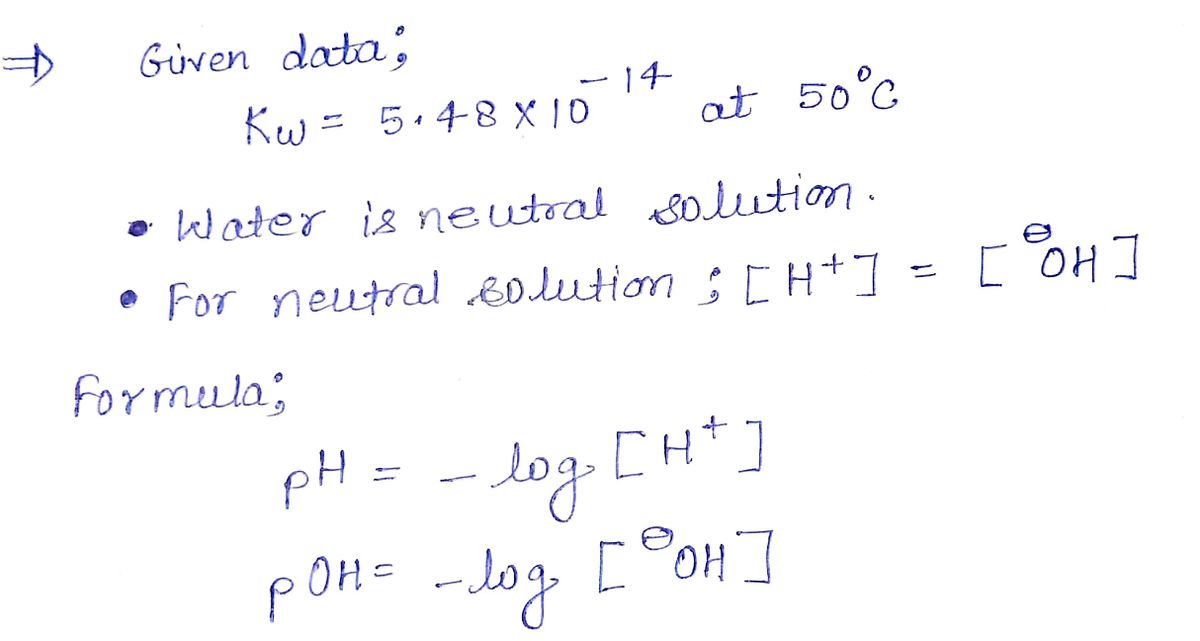 ⇒ Given data;
Kw = 5.48 × 10⁻¹⁴ at 50°C
• Water is neutral solution.
• For neutral solution ; [H⁺] = [⊖OH]
Formula;
pH = - log [H⁺]
pOH = - log [⊖OH]